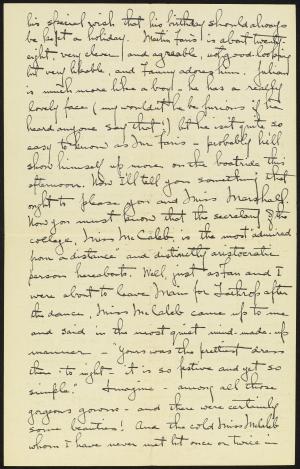 his special wish that his birthday should always
be kept a holiday. Mister Faris is about twenty-
eight, very clever and agreeable, not good looking
but very likable, and Fanny adores him. Julian
is much more like a boy - he has a really
lovely face (my wouldn't he be furious if he
heard anyone say that!) but he isn't quite so
easy to know as Mr Faris - probably he'll
show himself up more on the boatride this
afternoon. Now I'll tell you something that
ought to please you and Miss Marshall.
Now you must know that the secretary of the
college, Miss McCaleb is the most admired
from a distance and distinctly aristocratic
person hereabouts. Well, just as Fan and I
were about to leave Main for Lathrop after
the dance, Miss McCaleb came up to me
and said in the most quiet mind-made-up
manner - "Yours was the prettiest dress
there to-night - it is so festive and yet so
simple." Imagine - among all those
gorgeous gowns - and there were certainly
some beauties! And the cold Miss McCaleb
whom I have never met but once or twice in